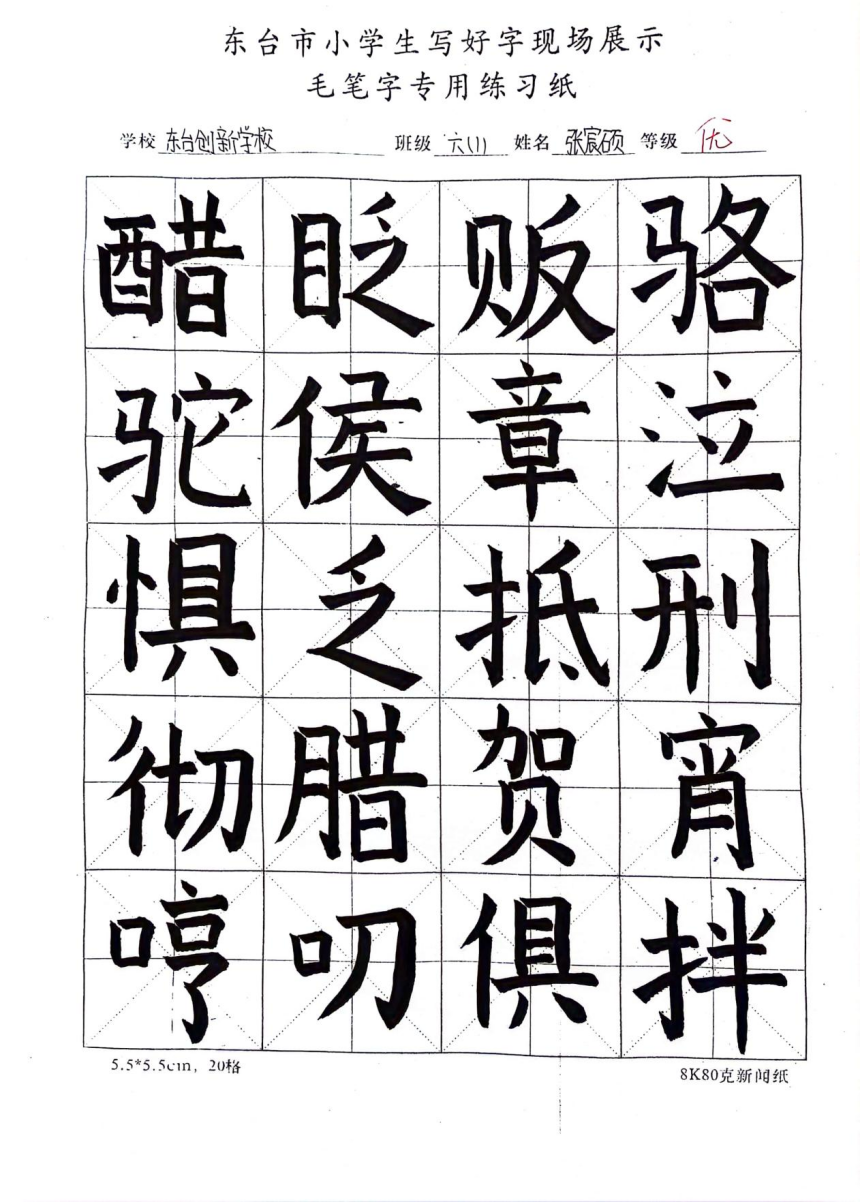 东台市小学生写好字现场展示
毛笔字专用练习纸
学校 东台创新学校 班级 六(1) 姓名 张宸硕 等级 优
醋眨贩骆
驼侯章泣
惧乏抵刑
彻腊贺宵
哼叨俱拌
5.5*5.5cm，20格 8K80克新闻纸